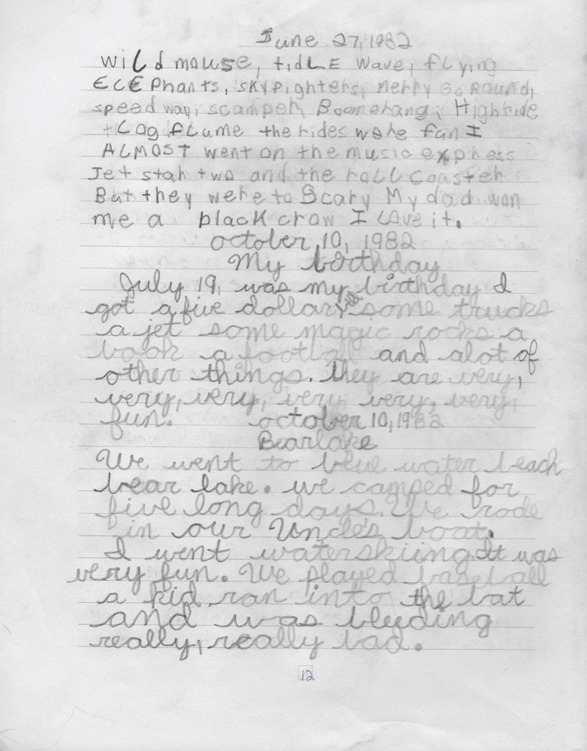 June 27, 1982
wild mouse, tidLE wave, flying
ELEPhants, skyfighters, merry go round,
speed way, scamper, Boomerang, Highride
+ Log flume the rides were fun I
ALMOST went on the music express
Jet star two and the roll coaster
But they were to Scary My dad won
me a black crow I Love it.
october 10, 1982
My birthday
July 19, was my birthday I
got a five dollar bill some trucks
a jet some magic rocks a
book a football and alot of
other things. they are very,
very, very, very very, very,
fun. october 10, 1982
Bearlake
We went to blue water beach
bear lake. we camped for
five long days. We rode
in our Uncle's boat.
I went waterskiing It was
very fun. We played baseball
a kid ran into the bat
and was bleuding
really, really bad.
12